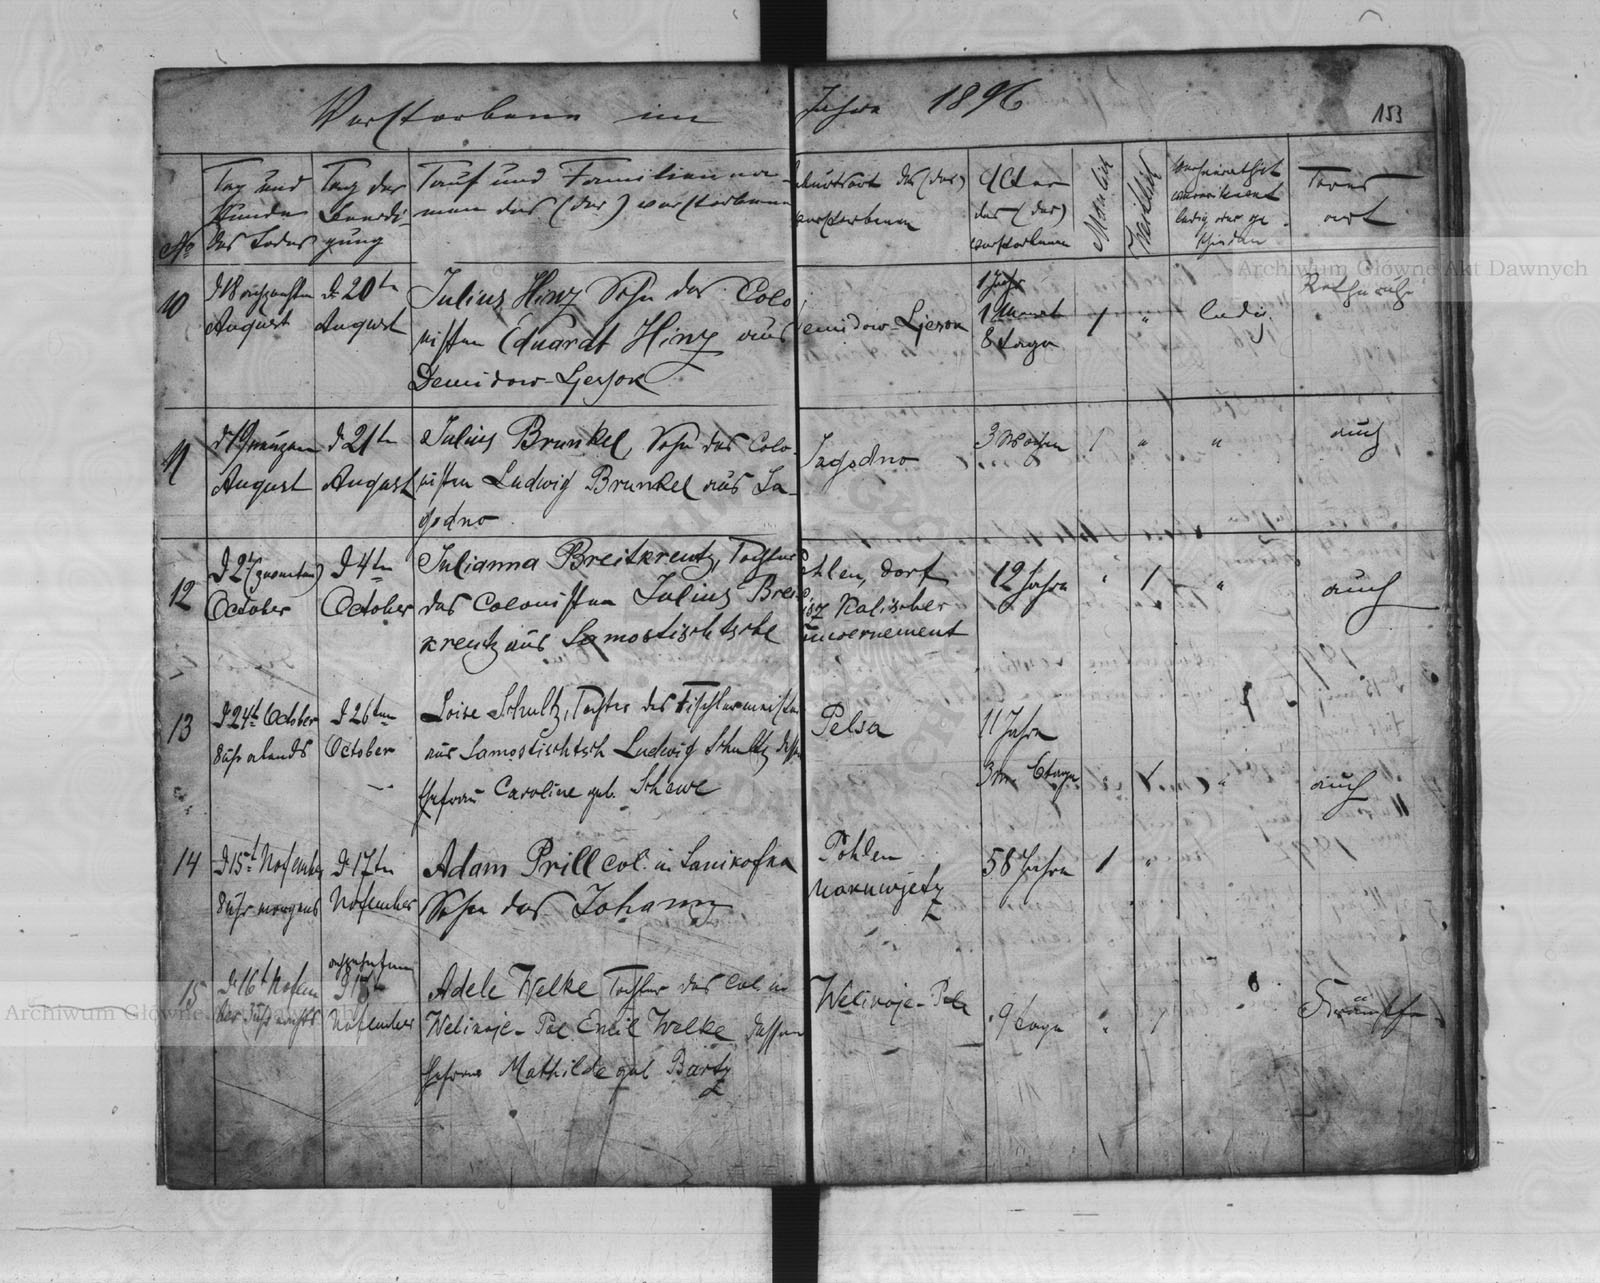 Verstorbene im Jahre 1896
153
No
Tag und
Stunde
des Todes
Tag der
Beerdi-
gung
Tauf und Familienna-
men des (der) verstorbenen
Geburtsort des (der)
verstorbenen
Alter
des (der)
verstorbenen
Männlich
Weiblich
Verheirathet
ledig oder ge
schieden
Todes
art
10
d 18 achzehnten
August
d. 20ten
August
Julius Hinz Sohn des Colo
nisten Eduardt Hinz aus
Demidow-Ljesok
Demidow-Ljesok
1 Jahr
1 Monat
8 Tage
1
"
ledig
11
August
d 21ten
August
Julius Brunkel, Sohn des Colo-
nisten Ludwig Brunkel aus Ja-
godno
Jagodno
3 Wochen
1
"
"
auch
12
D 2t (zweiten)
October
D 4ten
October
Julianna Breitkreutz, Tochter
des Colonisten Julius Breit
kreutz aus Samostischtsche
Pohlen, Dorf
Kalischer
Gouvernement
12 Jahre
"
1
"
auch
13
D 24t October
8 uhr abends
D 26ten
October
Loise Schultz, Tochter des Tischlermeister
aus Samostischtsch Ludwig Schultz, dessen
Ehefrau Caroline geb. Schewe
Pelsa
11 Jahre
3 M. 6 Tage
"
1
"
auch
14
D 15t November
8 Uhr morgens
D 17ten
November
Adam Prill col. in Sanikofka
Sohn des Johann
Pohlen
58 Jahre
1
"
15
D 16t Novem
ber
achzehnten
D 18t
November
Adele Welke Tochter des Col. in
Welikoje-Pole Emil Welke, dessen
Ehefrau Mathilde geb. Bartz
Welikoje-Pole
9 Tage
"
1
Krämpfe
Archiwum Główne Akt Dawnych
Archiwum Główne Akt Dawnych